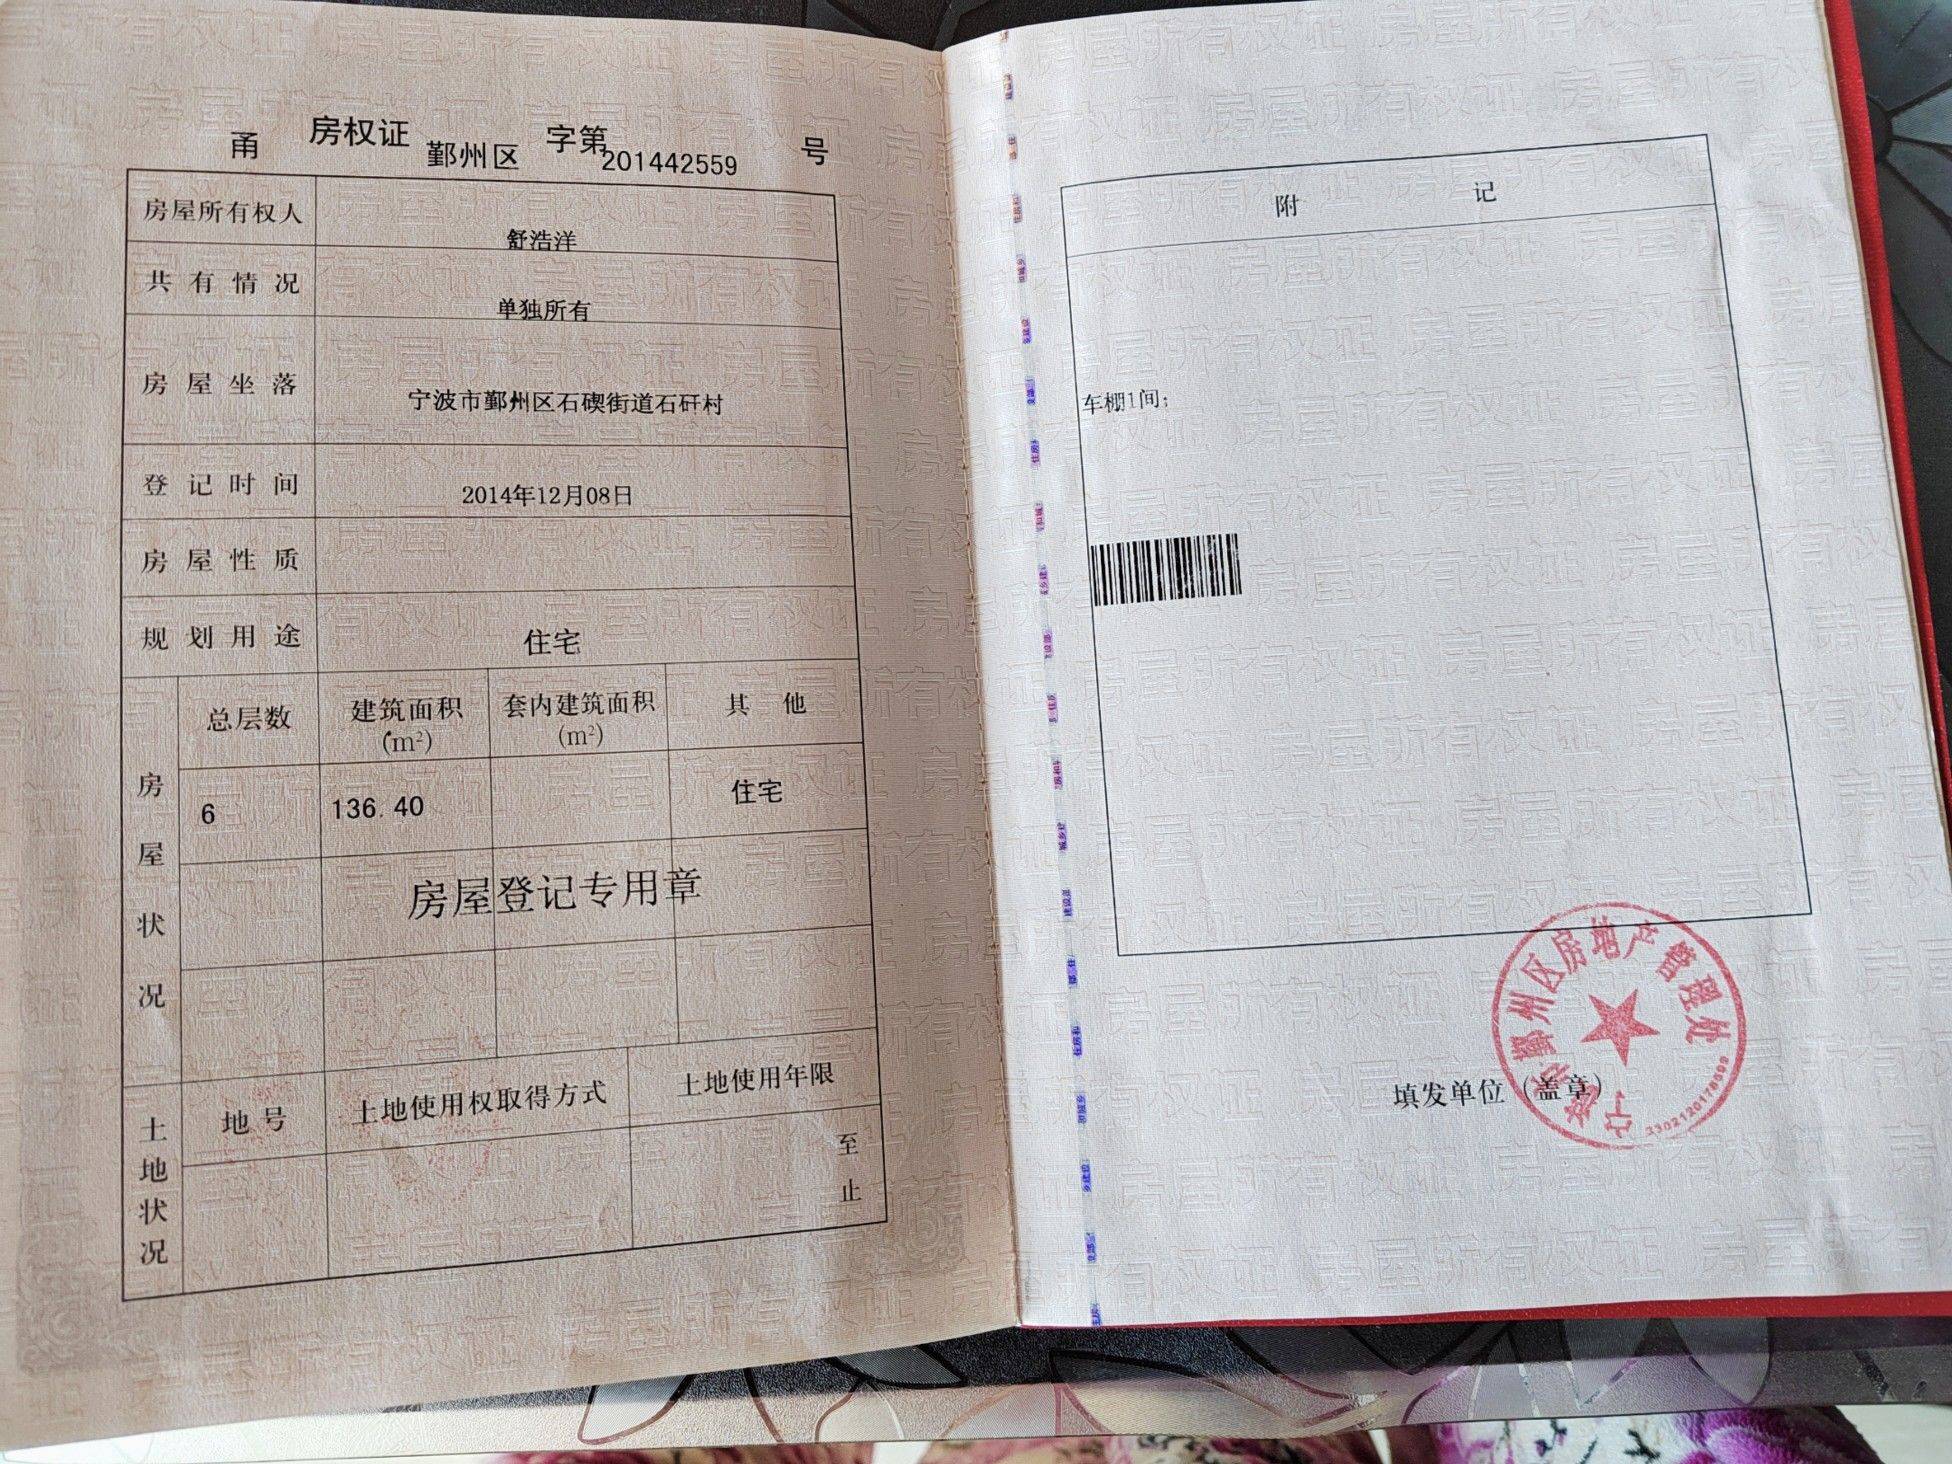 甬 房权证 鄞州区 字第 201442559 号
房屋所有权人 舒浩洋
共有情况 单独所有
房屋坐落 宁波市鄞州区石碶街道石矸村
登记时间 2014年12月08日
房屋性质
规划用途 住宅
房屋状况
总层数 建筑面积(m²) 套内建筑面积(m²) 其他
6 136.40 住宅
房屋登记专用章
土地状况
地号 土地使用权取得方式 土地使用年限
至
止
附 记
车棚1间;
填发单位（盖章）
宁波市鄞州区房地产管理处